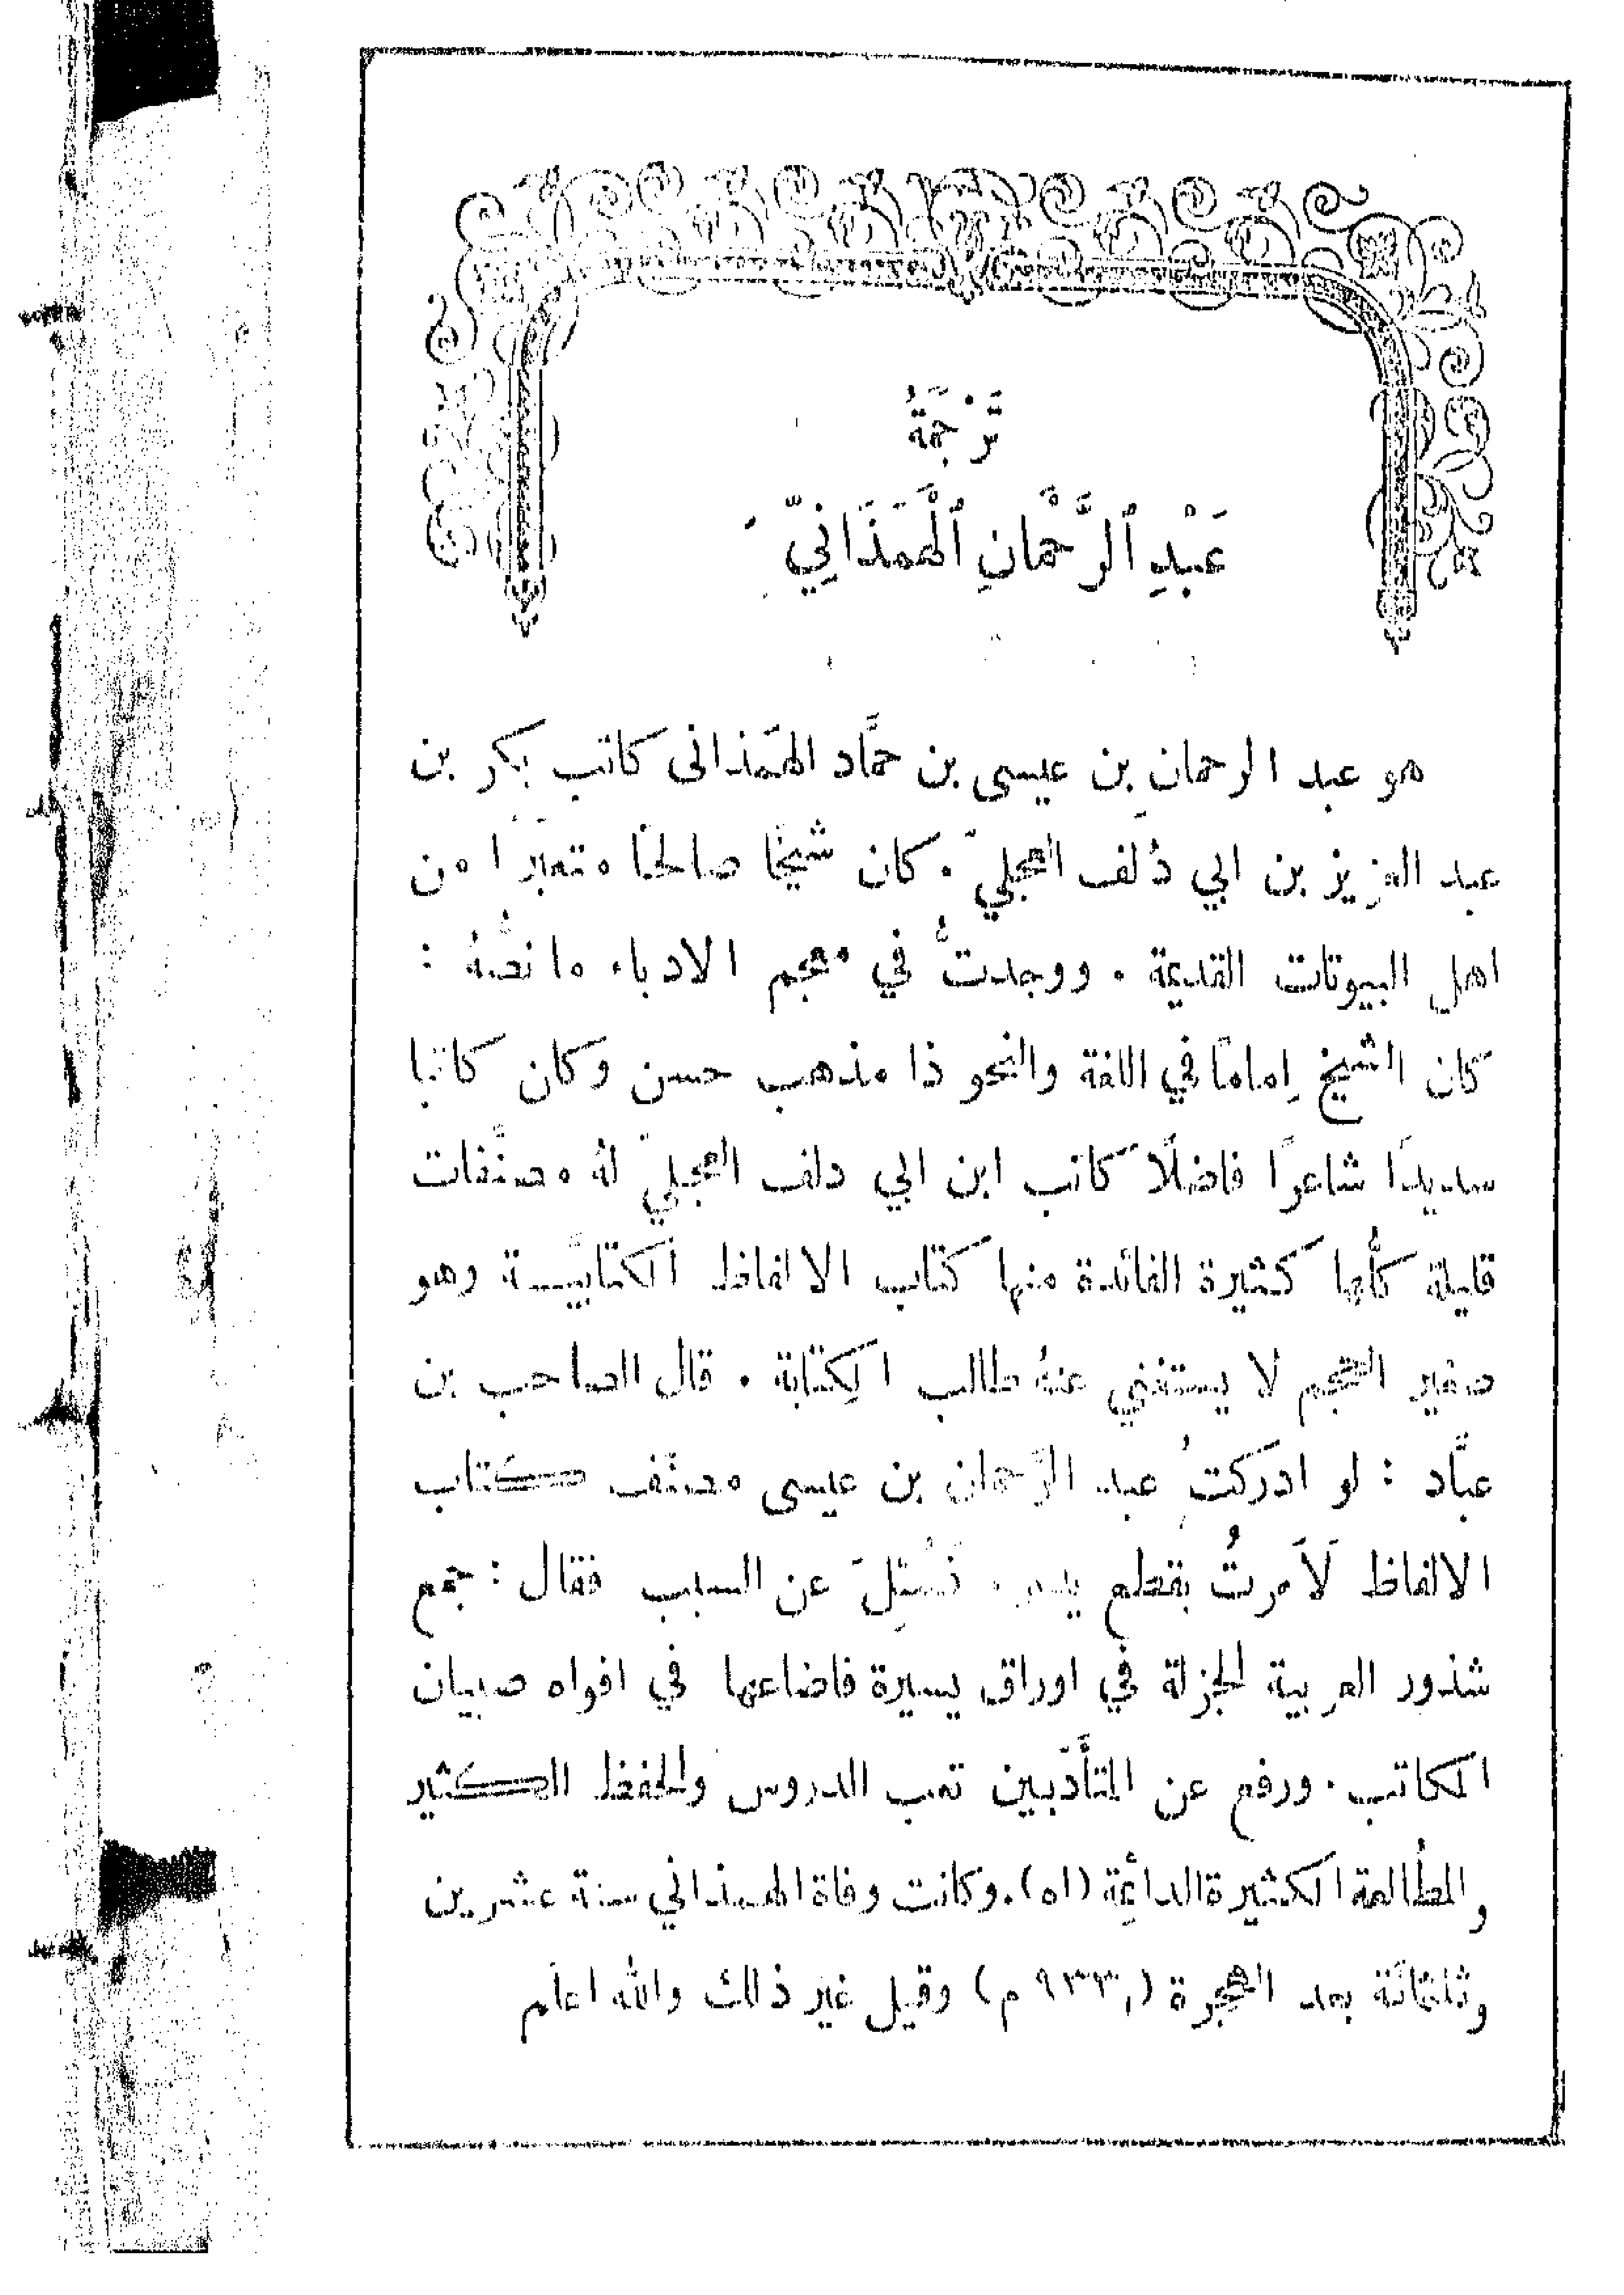 تَرْجَمَةُ
عَبْدِ ٱلرَّحْمَانِ ٱلْهَمَذَانِيِّ
هو عبد الرحمان بن عيسى بن حمَّاد الهمَذانى كاتب بكر بن
عبد العزيز بن ابي دُلف العجليّ. كان شيخًا صالحًا متعبّرًا من
اهل البيوتات القديمة. ووجدتُ في معجم الادباء ما نصُّهُ :
كان الشيخ إمامًا في اللغة والنحو ذا مذهب حسن وكان كاتبا
سديدًا شاعرًا فاضلًا كاتب ابن ابي دلف العجليّ لهُ مصنَّفات
قليلة كلُّها كثيرة الفائدة منها كتاب الالفاظ الكتابيَّة وهو
صغير الحجم لا يستغني عنهُ طالب الكِتابة. قال الصاحب بن
عبَّاد : لو ادركتُ عبد الرَّحمان بن عيسى مصنّف كتاب
الالفاظ لَأَمرتُ بقطع يدهِ. فَسُئِلَ عن السبب فقال : جمع
شذور العربية الجزلة في اوراق يسيرة فاضاعها في افواه صبيان
المكاتب. ورفع عن المتأَدّبين تعب الدروس والحفظ الكثير
والمطُالعة الكثيرة الدائمة (اه). وكانت وفاة الهمذاني سنة عشرين
وثلثمائة بعد الهجرة (٩٣٣ م) وقيل غير ذلك والله اعلم